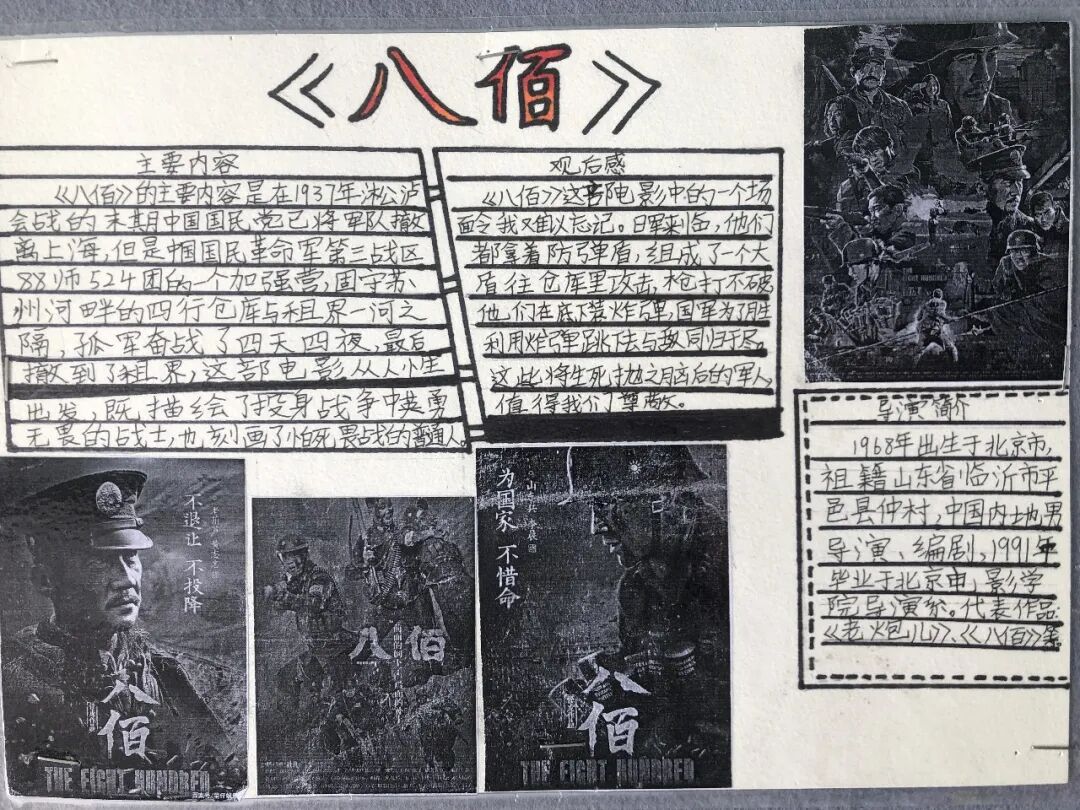 《八佰》
主要内容
《八佰》的主要内容是在1937年淞沪
会战的末期中国国民党已将军队撤
离上海,但是中国国民革命军第三战区
88师524团的一个加强营,固守苏
州河畔的四行仓库与租界一河之
隔,孤军奋战了四天四夜,最后
撤到了租界,这部电影从人性
出发,既描绘了投身战争中英勇
无畏的战士,也刻画了怕死畏战的普通人。
观后感
《八佰》这部电影中的一个场
面令我难以忘记。日军来到后,他们
都拿着防弹盾,组成了一个大
盾往仓库里攻击,枪打不破
他们在底下装炸弹,国军为了胜
利用炸弹跳下去与敌同归于尽。
这些将生死抛之脑后的军人,
值得我们尊敬。
导演简介
1968年出生于北京市,
祖籍山东省临沂市平
邑县仲村,中国内地男
导演、编剧,1991年
毕业于北京电影学
院导演系。代表作品:
《老炮儿》、《八佰》等
不退让 不投降
八佰
THE EIGHT HUNDRED
八佰
为国家 不惜命
八佰
THE EIGHT HUNDRED